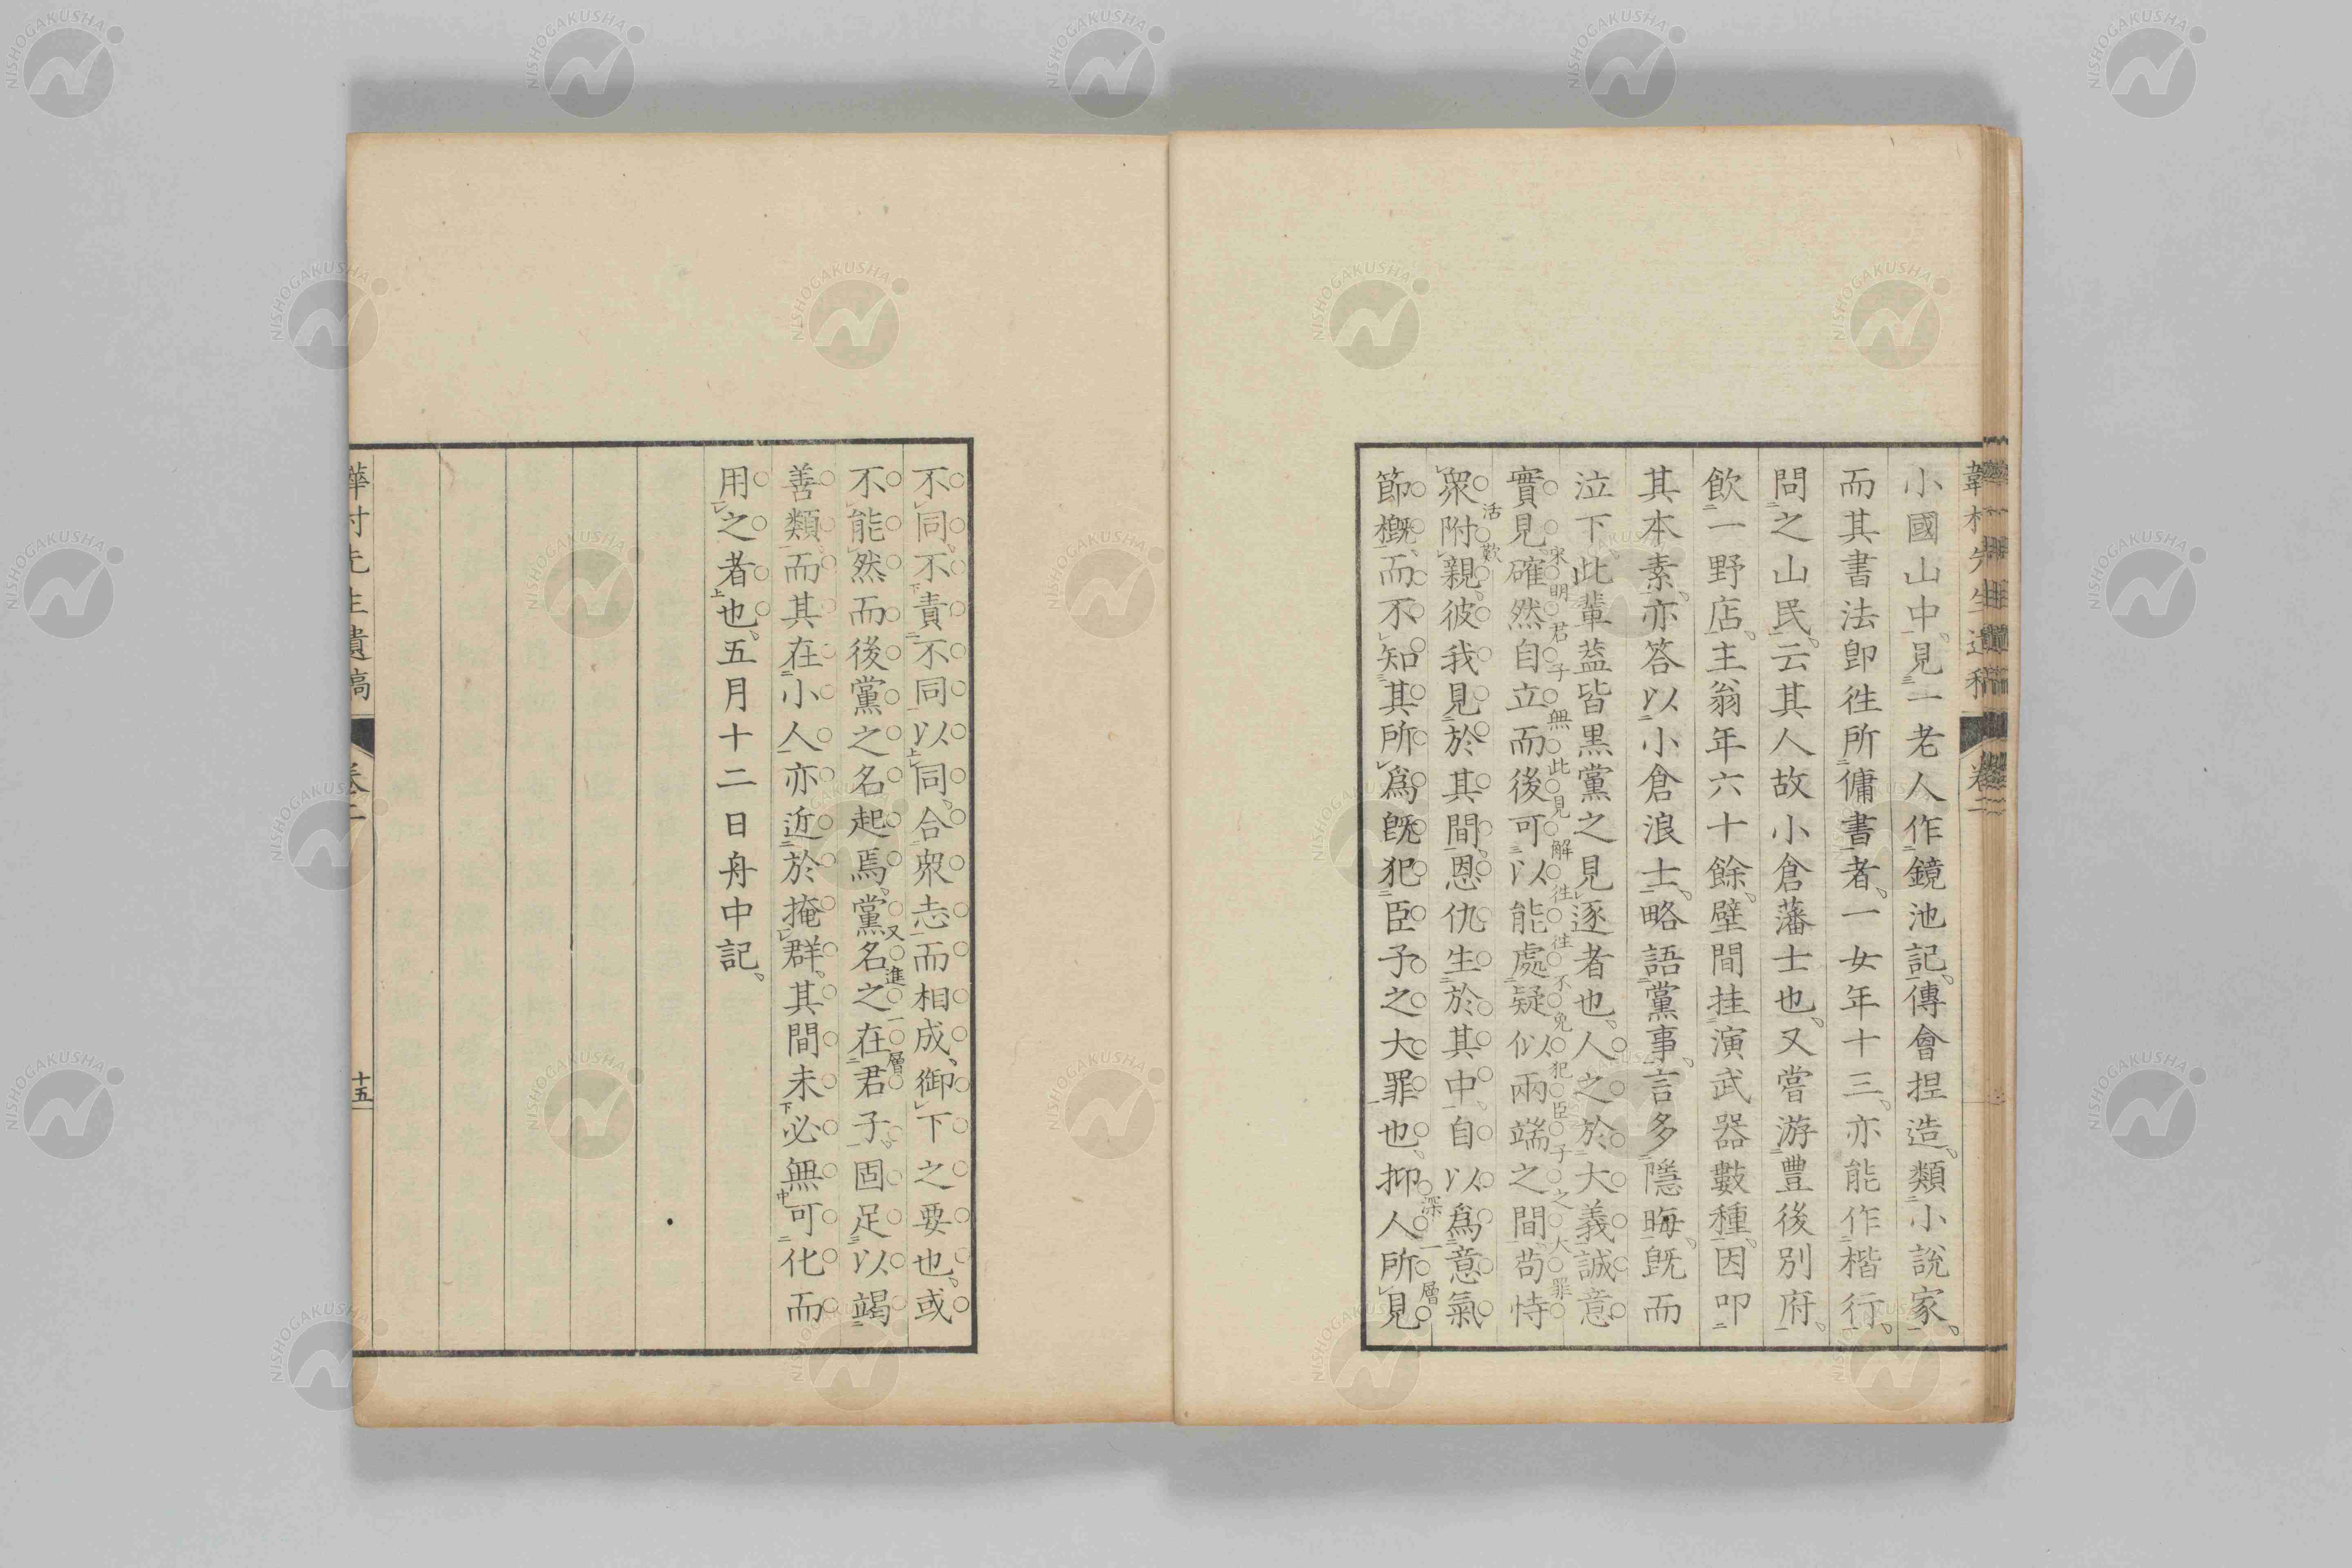 小國山中、見一老人作鏡池記、傳會捏造、類小說家、
而其書法卽徃所傭書者、一女年十三、亦能作楷行、
問之山民、云其人故小倉藩士也、又嘗游豊後別府、
飲一野店、主翁年六十餘、壁間挂演武器數種、因叩
其本素、亦答以小倉浪士、略語黨事、言多隱晦、旣而
泣下、此輩葢皆黒黨之見逐者也、人之於大義誠意
宋明君子無此見解徃徃不免犯臣子之大罪
實見、確然自立而後可以能處疑似兩端之間、苟恃
活歎
衆附親、彼我見於其間、恩仇生於其中、自以爲意氣
深一層
節槪、而不知其所爲旣犯臣子之大罪也、抑人所見
卷二
不同、不責不同以同、合衆志而相成、御下之要也、或
不能然而後黨之名起焉、黨名之在君子、固足以竭
又進一層
善類、而其在小人、亦近於掩群、其間未必無可化而
用之者也、五月十二日舟中記、
村先生遺稿
卷二
十五